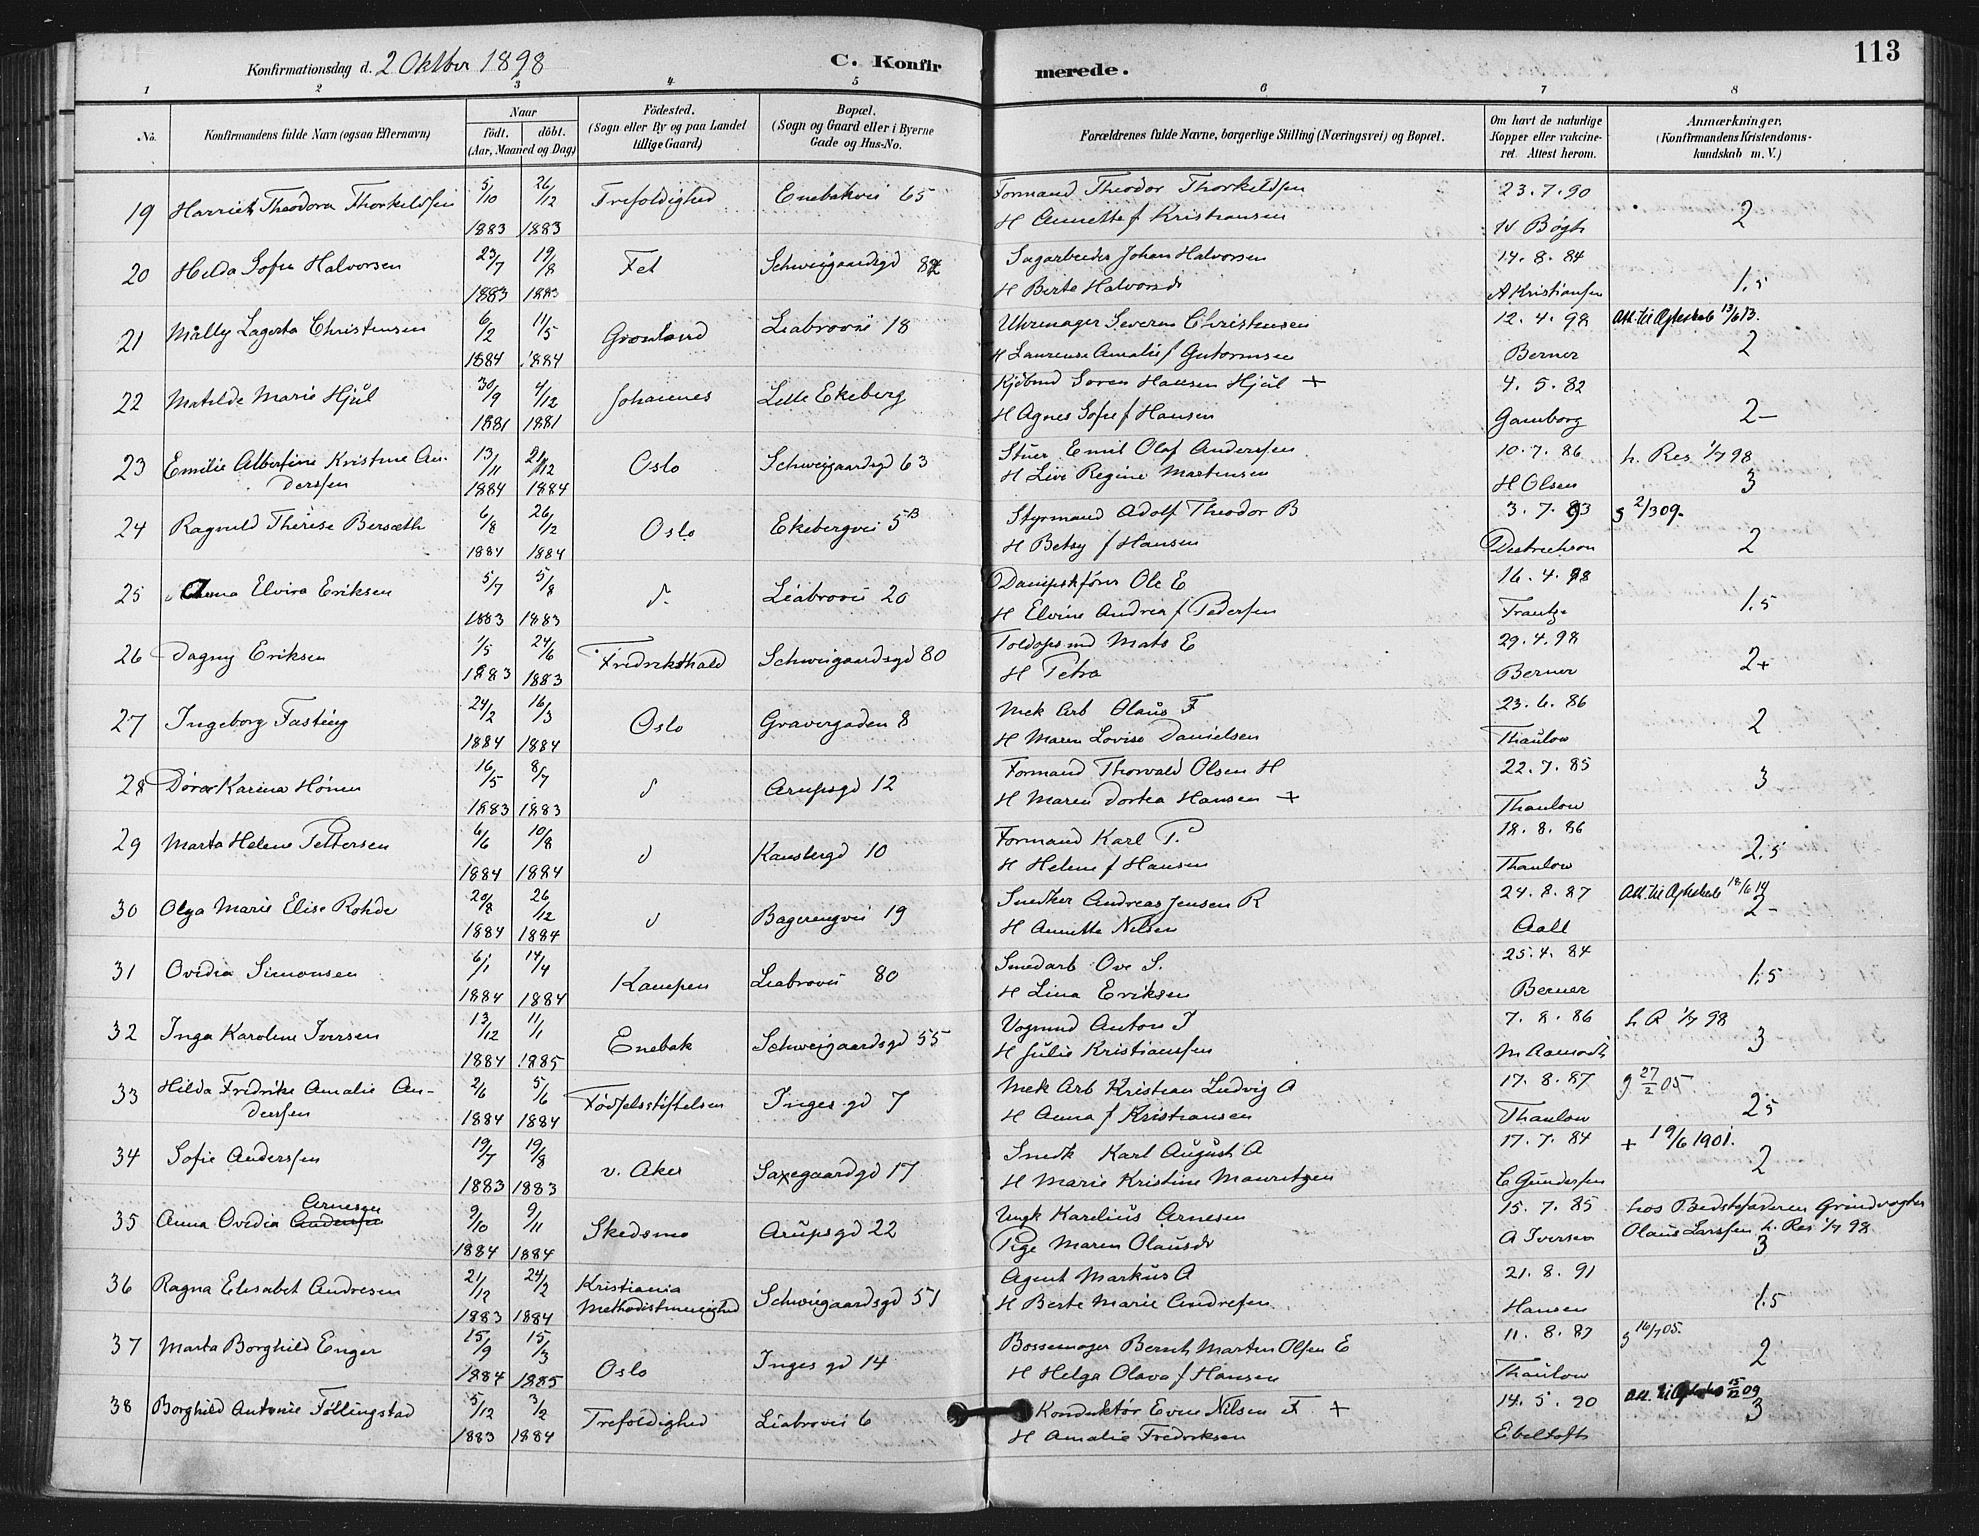 113
Konfirmationsdag d. 2 Oktber 1898 C. Konfirmerede.
1 2 3 4 5 6 7 8
No. Konfirmandens fulde Navn (ogsaa Efternavn) Naar födt. döbt. (Aar, Maaned og Dag) Födested. (Sogn eller By og paa Landet tillige Gaard) Bopæl. (Sogn og Gaard eller i Byerne Gade og Hus-No. Forældrenes fulde Navne, borgerlige Stilling (Næringsvei) og Bopæl. Om havt de naturlige Kopper eller vakcineret. Attest herom. Anmærkninger. (Konfirmandens Kristendomskundskab m. V.)
19 Harriet Theodora Thorkildsen 5/10 1883 26/12 1883 Trefoldighed Enebakvei 65 Formand Theodor Thorkildsen 23.7.90
H Annette f Kristiansen N Bögh 2
20 Hilda Sofie Halvorsen 23/7 1883 19/8 1883 Fet Schweigaardsgd 82 Sagarbeider Johan Halvorsen 14.8.84
H Berte Halvorsdr A Kristiansen 1,5
21 Mally Lagerta Christensen 6/2 1884 11/5 1884 Grønland Liabrovei 18 Uhrmager Severin Christensen 12.4.98 Att. til Ægteskab 13/6 13.
H Laurense Amalie f Gutormsen Berner 2
22 Matilde Marie Hjul 30/9 1881 4/12 1881 Johannes Lille Ekeberg Kjöbmd Soren Hansen Hjul + 4.5.82
H Agnes Sofie f Hansen Gamborg 2-
23 Emilie Albertine Kristine Anderssen 13/11 1884 21/12 1884 Oslo Schweigaardsgd 63 Stuer Emil Olaf Anderssen 10.7.86 h. Res 1/7 98
H Live Regine Martinsen H Olsen 3
24 Ragnild Therese Berseth 6/8 1884 26/12 1884 Oslo Ekebergvei 5B Styrmand Adolf Theodor B 3.7.93 g 2/3 09.
H Betsy f Hansen Dietrichson 2
25 Anna Elvira Eriksen 5/7 1883 5/8 1883 d. Liabrovei 20 Dampskförer Ole E 16.4.98
H Elvine Andrea f Pedersen Frantze 1,5
26 Dagny Eriksen 1/5 1883 24/6 1883 Fredrikshald Schweigaardsgd 80 Toldopsmd Mats E 29.4.98
H Petra Berner 2+
27 Ingeborg Fasting 24/2 1884 16/3 1884 Oslo Gravergaden 8 Mek Arb Olaus F 23.6.86
H Maren Lovise Danielsen Thaulow 2
28 Dorar Karina Hönen 16/5 1883 8/7 1883 d Arupsgd 12 Formand Thorvald Olsen H 22.7.85
H Maren Dortea Hansen + Thaulow 3
29 Marta Helene Pettersen 6/6 1884 10/8 1884 d Kanslergd 10 Formand Karl P. 18.8.86
H Helene f Hansen Thaulow 2,5
30 Olga Marie Elise Rohde 20/8 1884 26/12 1884 d Bagerengvei 19 Snedker Andreas Jensen R 24.8.87 Att. til Ægteskab 18/6 14
H Annette Nilsen Aall 2-
31 Ovidia Simonsen 6/1 1884 14/4 1884 Kampen Liabrovei 80 Smedarb Ove S. 25.4.84
H Lina Eriksen Berner 1,5
32 Inga Karoline Iversen 13/12 1884 11/1 1885 Enebak Schweigaardsgd 55 Vogmnd Anton I 7.8.86 h R 1/7 98
H Julie Kristianssen M Aamodt 3
33 Hilda Fredrikke Amalie Anderssen 2/6 1884 5/6 1884 Födselsstiftelsen Inges gd 7 Mek Arb Kristian Ludvig A 17.8.87 g 27/2 05.
H Anna f Kristiansen Thaulow 2,5
34 Sofie Anderssen 19/7 1883 19/8 1883 v. Aker Saxegaardgd 17 Snedk Karl August A 17.7.84 + 19/6 1901.
H Marie Kristine Mauritzen C Gundersen 2
35 Anna Ovidia Anderssen Arnesen 9/10 1884 9/11 1884 Skedsmo Arupsgd 22 Ungk Karelius Arnesen 15.7.85 hos Bedstefaderen Grindvogter
Pige Maren Olausdr A Iversen Olaus Larssen h. Res 1/7 98 3
36 Ragna Elisabet Andresen 21/12 1883 24/2 1884 Kristiania Methodistmenighed Schweigaardsgd 51 Agent Markus A 21.8.91
H Berte Marie Andresen Hansen 1,5
37 Marta Borghild Enger 15/9 1884 15/3 1885 Oslo Inges gd 14 Bossemager Bernt Martin Olsen E 11.8.87 g 16/7 05.
H Helga Olava f Hansen Thaulow 2
38 Borghild Antonie Föllingstad 5/12 1883 3/2 1884 Trefoldighed Liabrovei 6 Konduktör Even Nilsen F + 14.5.90 Att. til Ægteskab 15/12 09
H Amalie Fredriksen Ebeltoft 3